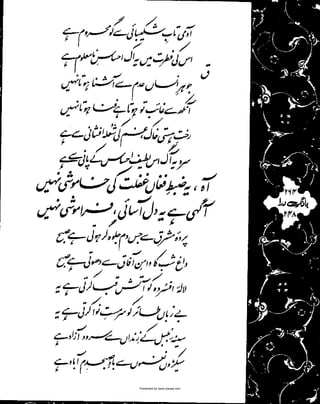 آدمی تابِ شکیبائی سے گو محروم ہے
اس کی فطرت میں یہ اک احساسِ نامعلوم ہے
ق
جوہرِ انساں عدم سے آشنا ہوتا نہیں
آنکھ سے غائب تو ہوتا ہے فنا ہوتا نہیں
رختِ ہستی خاکِ غم کی شعلہ افشانی سے ہے
سرد یہ آگ اس لطیف احساس کے پانی سے ہے
آہ، یہ ضبطِ فغاں غفلت کی خاموشی نہیں
آگہی ہے یہ دل آسائی، فراموشی نہیں
پردۂ مشرق سے جس دم جلوہ گر ہوتی ہے صبح
داغ شب کا دامنِ آفاق سے دھوتی ہے صبح
لالۂ افسردہ کو آتش قبا کرتی ہے یہ
بے زباں طائر کو سرمستِ نوا کرتی ہے یہ
سینۂ بلبل کے زنداں سے سرود آزاد ہے
سیکڑوں نغموں سے بادِ صبح دم آباد ہے
۲۶۳
بانگِ درا
۲۳۸